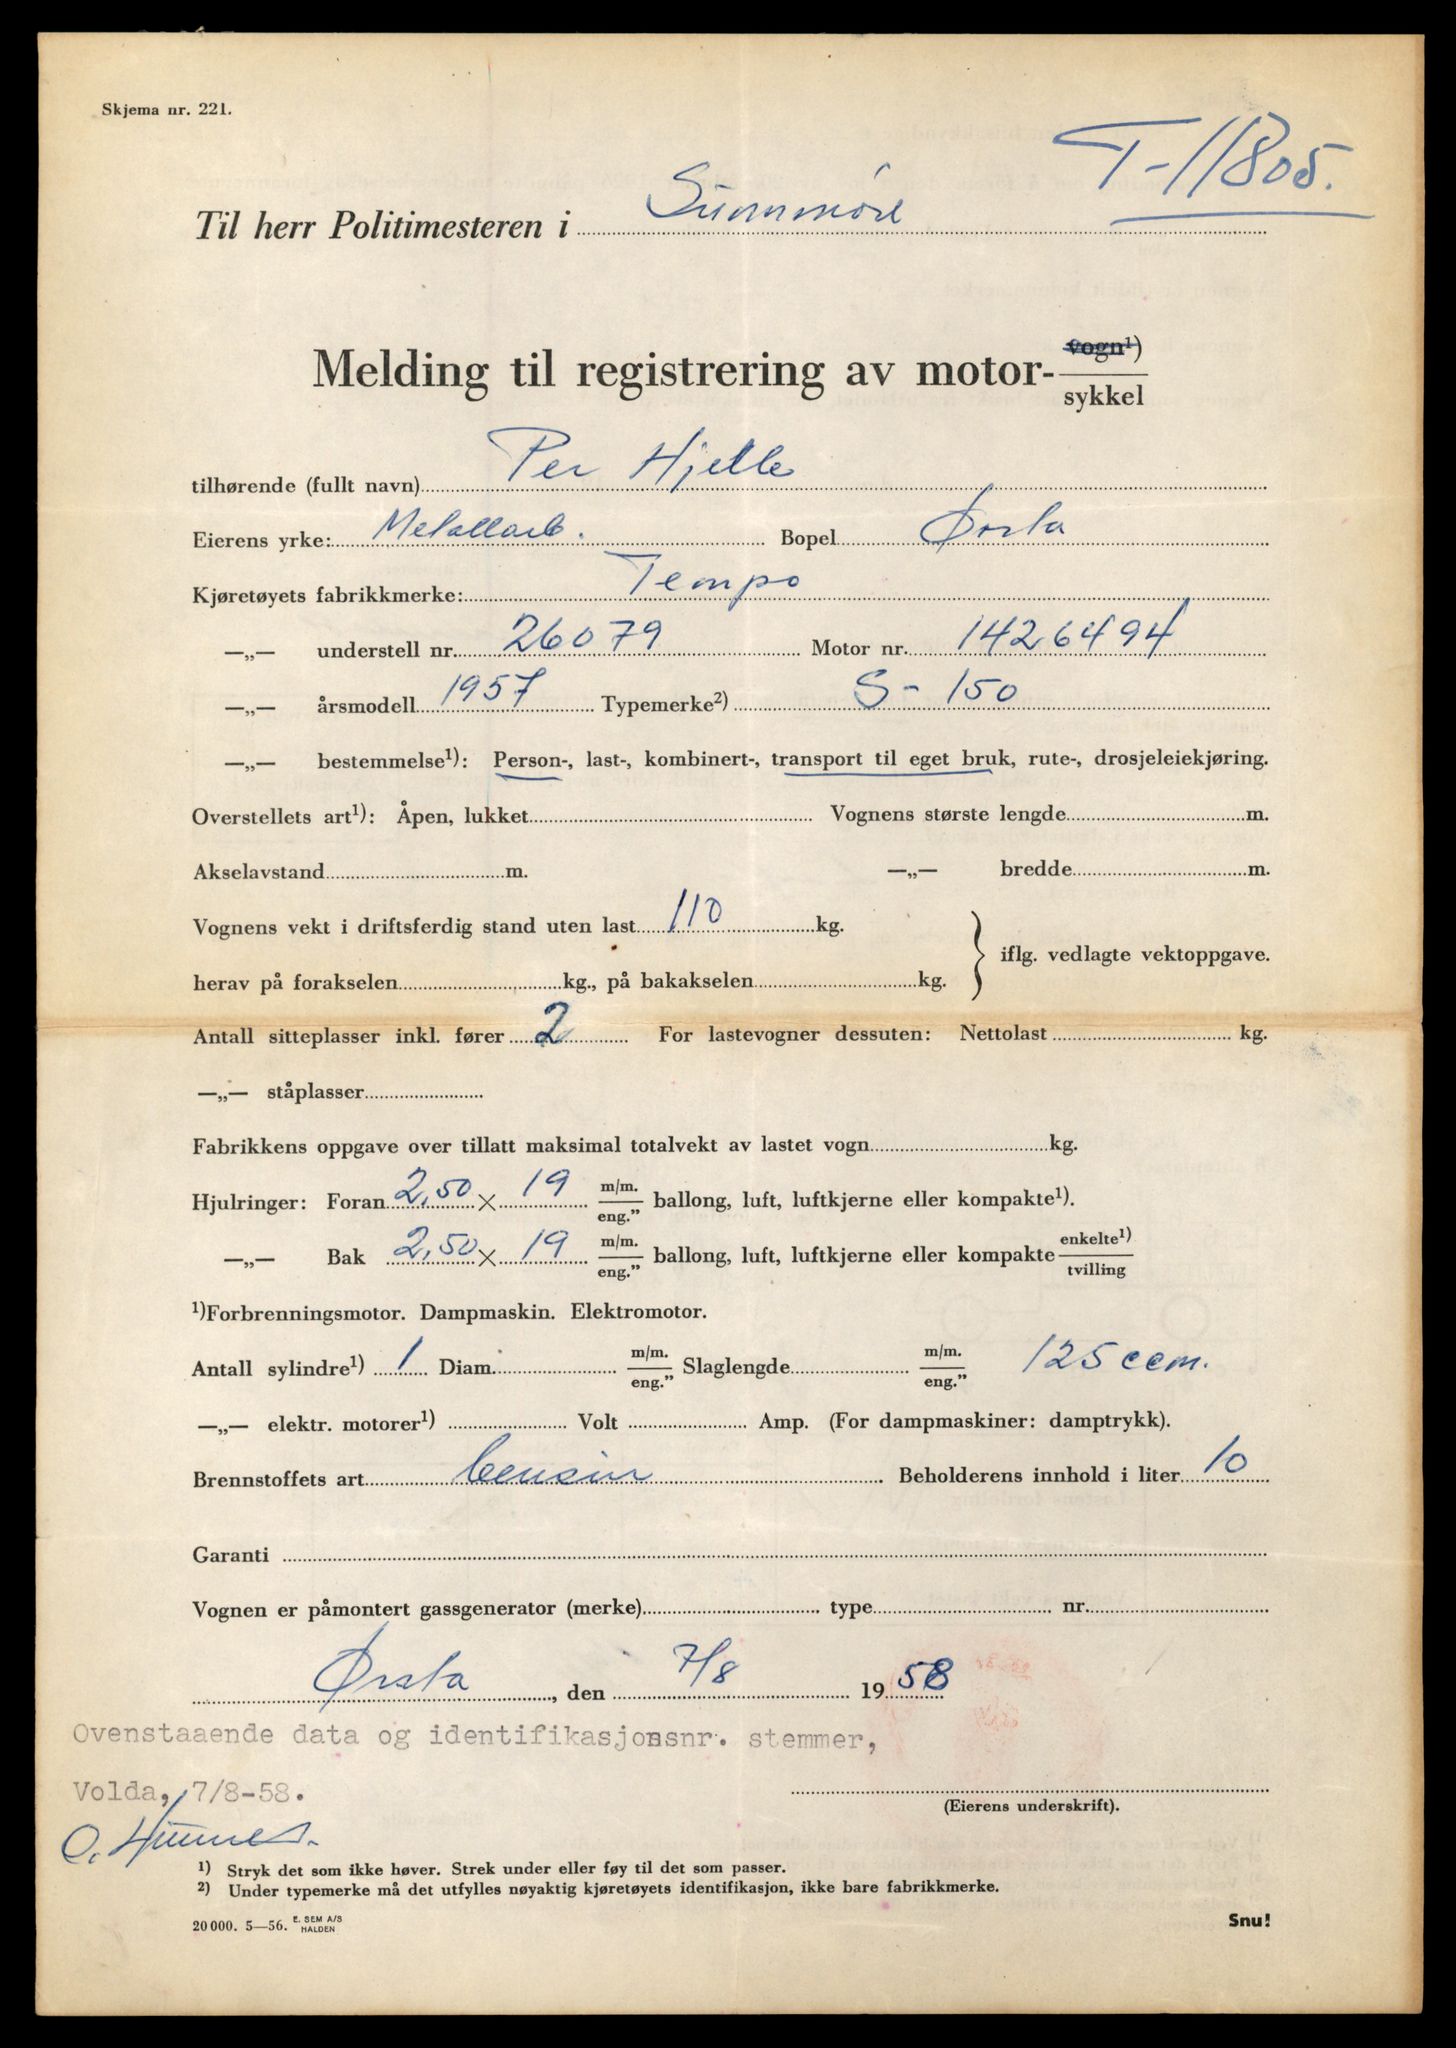 Skjema nr. 221.
T-11805.
Til herr Politimesteren i Sunnmøre
Melding til registrering av motor- vogn¹) sykkel
tilhørende (fullt navn) Per Hjelle
Eierens yrke: Metallarb. Bopel Ørsta
Kjøretøyets fabrikkmerke: Tempo
—„— understell nr. 26079 Motor nr. 1426494
—„— årsmodell 1957 Typemerke²) S-150
—„— bestemmelse¹): Person-, last-, kombinert-, transport til eget bruk, rute-, drosjeleiekjøring.
Overstellets art¹): Åpen, lukket Vognens største lengde m.
Akselavstand m. —„— bredde m.
Vognens vekt i driftsferdig stand uten last 110 kg.
iflg. vedlagte vektoppgave.
herav på forakselen kg., på bakakselen kg.
Antall sitteplasser inkl. fører 2 For lastevogner dessuten: Nettolast kg.
—„— ståplasser
Fabrikkens oppgave over tillatt maksimal totalvekt av lastet vogn kg.
Hjulringer: Foran 2,50 × 19 m/m. eng.” ballong, luft, luftkjerne eller kompakte¹).
—„— Bak 2,50 × 19 m/m. eng.” ballong, luft, luftkjerne eller kompakte enkelte¹) tvilling
¹)Forbrenningsmotor. Dampmaskin. Elektromotor.
Antall sylindre¹) 1 Diam. m/m. eng.” Slaglengde m/m. eng.” 125 ccm.
—„— elektr. motorer¹) Volt Amp. (For dampmaskiner: damptrykk).
Brennstoffets art bensin Beholderens innhold i liter 10
Garanti
Vognen er påmontert gassgenerator (merke) type nr.
Ørsta, den 7/8 1958
Ovenstaaende data og identifikasjonsnr. stemmer,
Volda, 7/8-58.
(Eierens underskrift).
¹) Stryk det som ikke høver. Strek under eller føy til det som passer.
²) Under typemerke må det utfylles nøyaktig kjøretøyets identifikasjon, ikke bare fabrikkmerke.
20 000. 5—56. E. SEM A/S HALDEN
Snu!